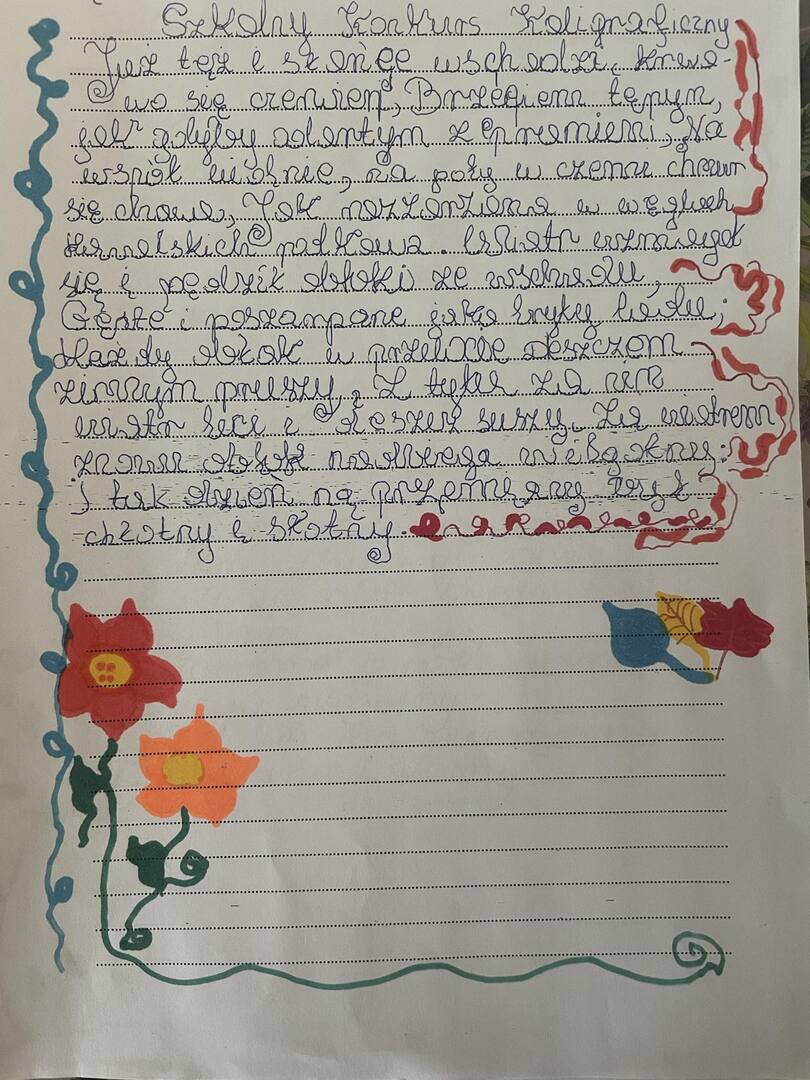 Szkolny Konkurs Kaligraficzny
Już tęż i słońce wschodzi, krwa-
wo się czerwieni, Brzegiem tępym,
jak gdyby odartym z promieni, Na
współ widne, na poły w czerni chmur
się chowa, Jak rozżarzona w węglach
kowalskich podkowa. Wiatr wzmagał
się i pędził obłoki ze wschodu,
Gęste i poszarpane jako bryły lodu;
Każdy obłok w przelocie deszczem
zimnym pruszy, Z tyłu za nim
wiatr leci i deszcz suszy, Za wiatrem
znowu obłok nadbiega wilgotny:
I tak dzień na przemiany był
chłodny i słotny.